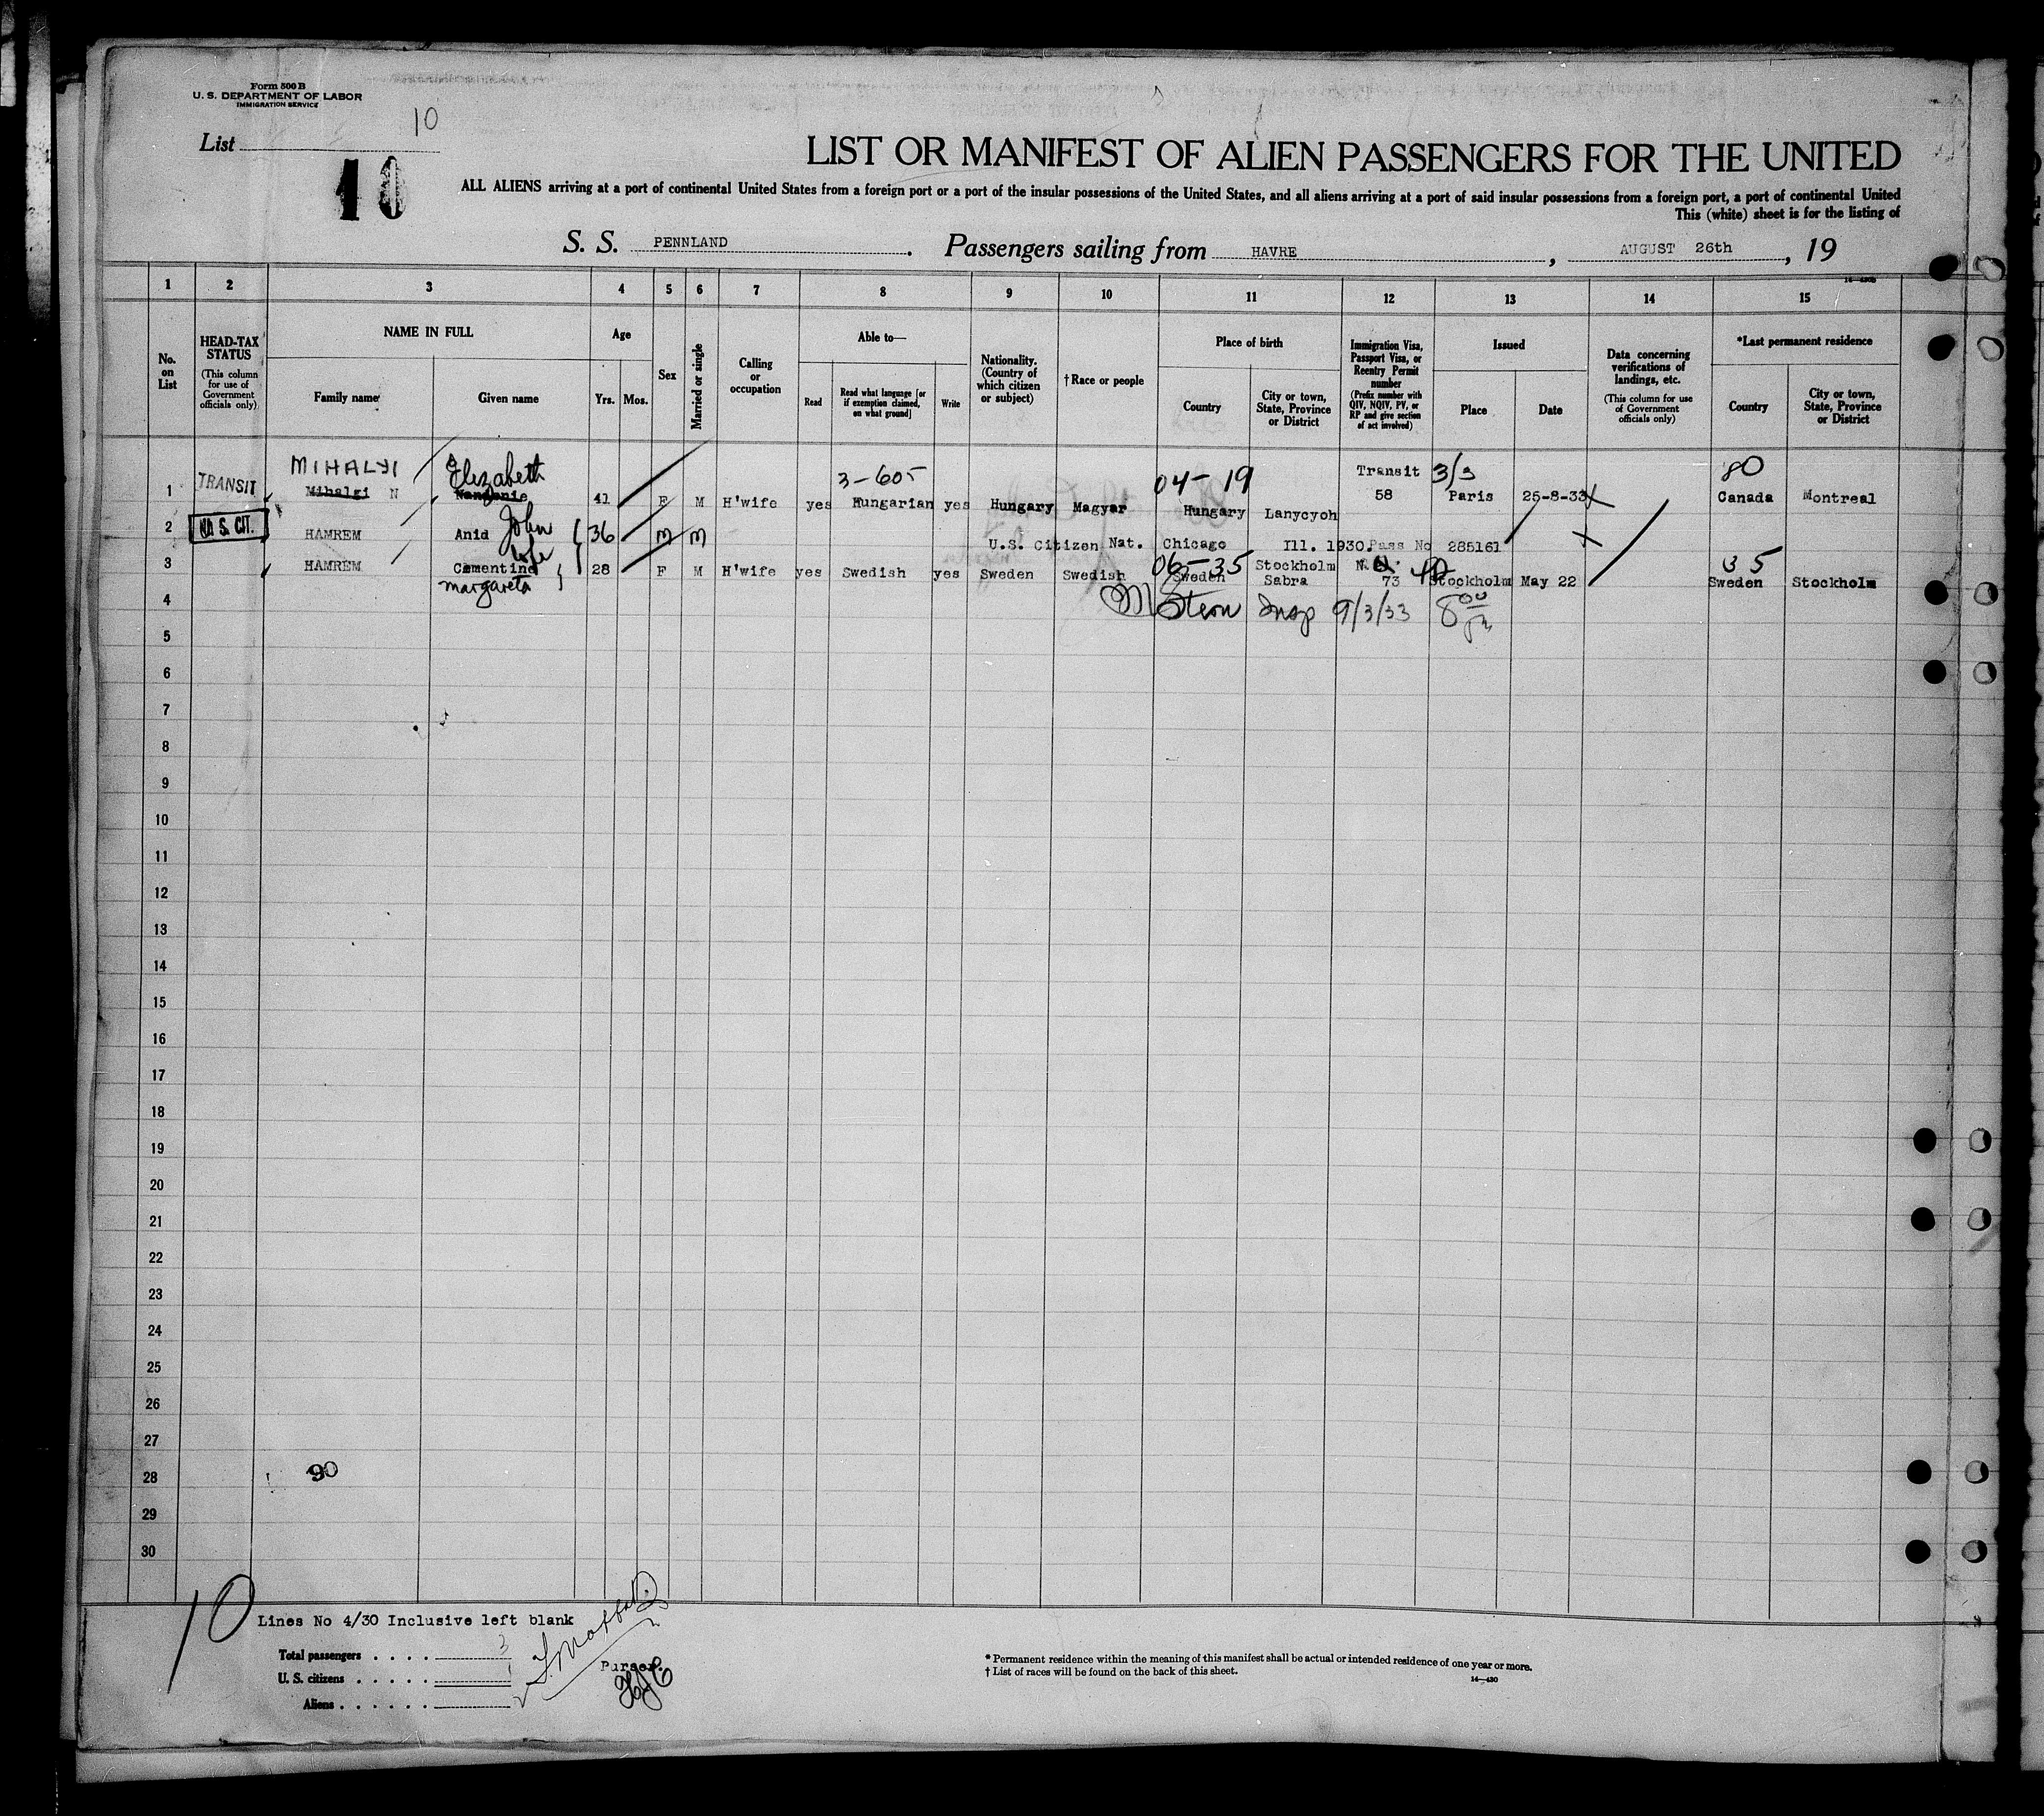 Form 500 B
U. S. DEPARTMENT OF LABOR
IMMIGRATION SERVICE
List 10
10
LIST OR MANIFEST OF ALIEN PASSENGERS FOR THE UNITED
ALL ALIENS arriving at a port of continental United States from a foreign port or a port of the insular possessions of the United States, and all aliens arriving at a port of said insular possessions from a foreign port, a port of continental United
This (white) sheet is for the listing of
S. S. PENNLAND. Passengers sailing from HAVRE, AUGUST 26th, 19
1 2 3 4 5 6 7 8 9 10 11 12 13 14 15
No. on List
HEAD-TAX STATUS (This column for use of Government officials only)
NAME IN FULL
Family name
Given name
Age
Yrs. Mos.
Sex
Married or single
Calling or occupation
Able to—
Read
Read what language [or if exemption claimed, on what ground]
Write
Nationality. (Country of which citizen or subject)
†Race or people
Place of birth
Country
City or town, State, Province or District
Immigration Visa, Passport Visa, or Reentry Permit number (Prefix number with QIV, NQIV, PV, or RP and give section of act involved)
Issued
Place
Date
Data concerning verifications of landings, etc. (This column for use of Government officials only)
*Last permanent residence
Country
City or town, State, Province or District
MIHALYI Elizabeth 3-605 04-19 Transit 3/3 80
1 TRANSIT Mihalgi N 41 F M H'wife yes Hungarian yes Hungary Magyar Hungary Lanycyoh 58 Paris 25-8-33 Canada Montreal
2 U. S. CIT. HAMREM Anid John 36 M M U.S. Citizen Nat. Chicago Ill. 1930. Pass No 285161
wife 06-35 Stockholm 35
3 HAMREM Cementine 28 F M H'wife yes Swedish yes Sweden Swedish Sweden Sabra 73 Stockholm May 22 Sweden Stockholm
margareta
4 Stern Insp 9/3/33 8 00
5
6
7
8
9
10
11
12
13
14
15
16
17
18
19
20
21
22
23
24
25
26
27
28 90
29
30
10
Lines No 4/30 Inclusive left blank
Total passengers . . . . 3
U. S. citizens . . . . . 1
Aliens . . . . . . 2
Purser.
* Permanent residence within the meaning of this manifest shall be actual or intended residence of one year or more.
† List of races will be found on the back of this sheet.
14—430